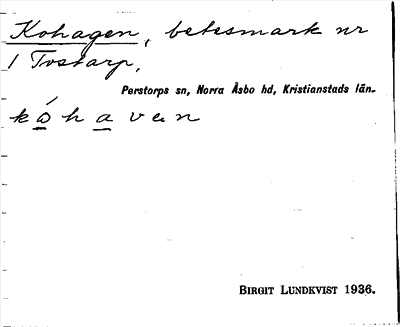 Kohagen, betesmark nr
1 Tostarp.
Perstorps sn, Norra Åsbo hd, Kristianstads län.
kóhavan
BIRGIT LUNDKVIST 1936.